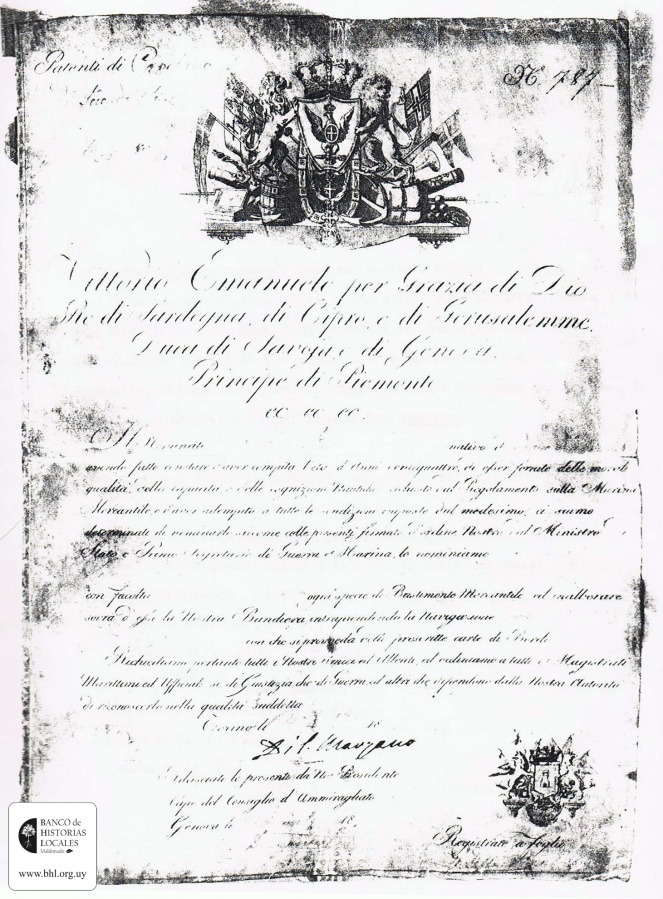 Patenti di
Nº 787
Vittorio Emanuele per Grazia di Dio
Re di Sardegna, di Cipro, e di Gerusalemme,
Duca di Savoja e di Genova,
Principe di Piemonte
ec ec ec.
nativo di
avendo fatto constare d'aver compiuta l'età d'Anni ventiquattro, di esser fornito delle morali
qualità, della capacità e delle cognizioni Nautiche volute dal Regolamento sulla Marina
Mercantile ed aver adempiuto a tutte le condizioni imposte dal medesimo, ci siamo
determinati di nominarlo siccome colle presenti firmate d'ordine Nostro dal Ministro
Stato e Primo Segretario di Guerra e Marina, lo nominiamo
con facoltà
ogni specie di Bastimento Mercantile ed inalborare
sovra d'essi la Nostra Bandiera intraprendendo la Navigazione
con che si provveda delle prescritte carte di Bordo
Richiediamo pertanto tutti i Nostri Amici ed Alleati, ed ordiniamo a tutti i Magistrati
Marittimi ed Uffiziali sì di Giustizia, che di Guerra ed altri che dipendono dalla Nostra Autorità
di riconoscerlo nella qualità suddetta
Torino li 18
Rilasciate le presenti da Noi Presidente
Capo del Consiglio d'Ammiragliato
Genova li 18
Registrate a foglio
BANCO de
HISTORIAS
LOCALES
Maldonado
www.bhl.org.uy